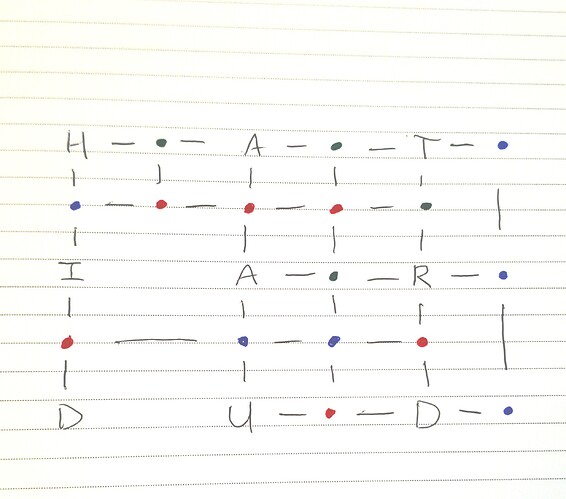 H A T
I A R
D U D